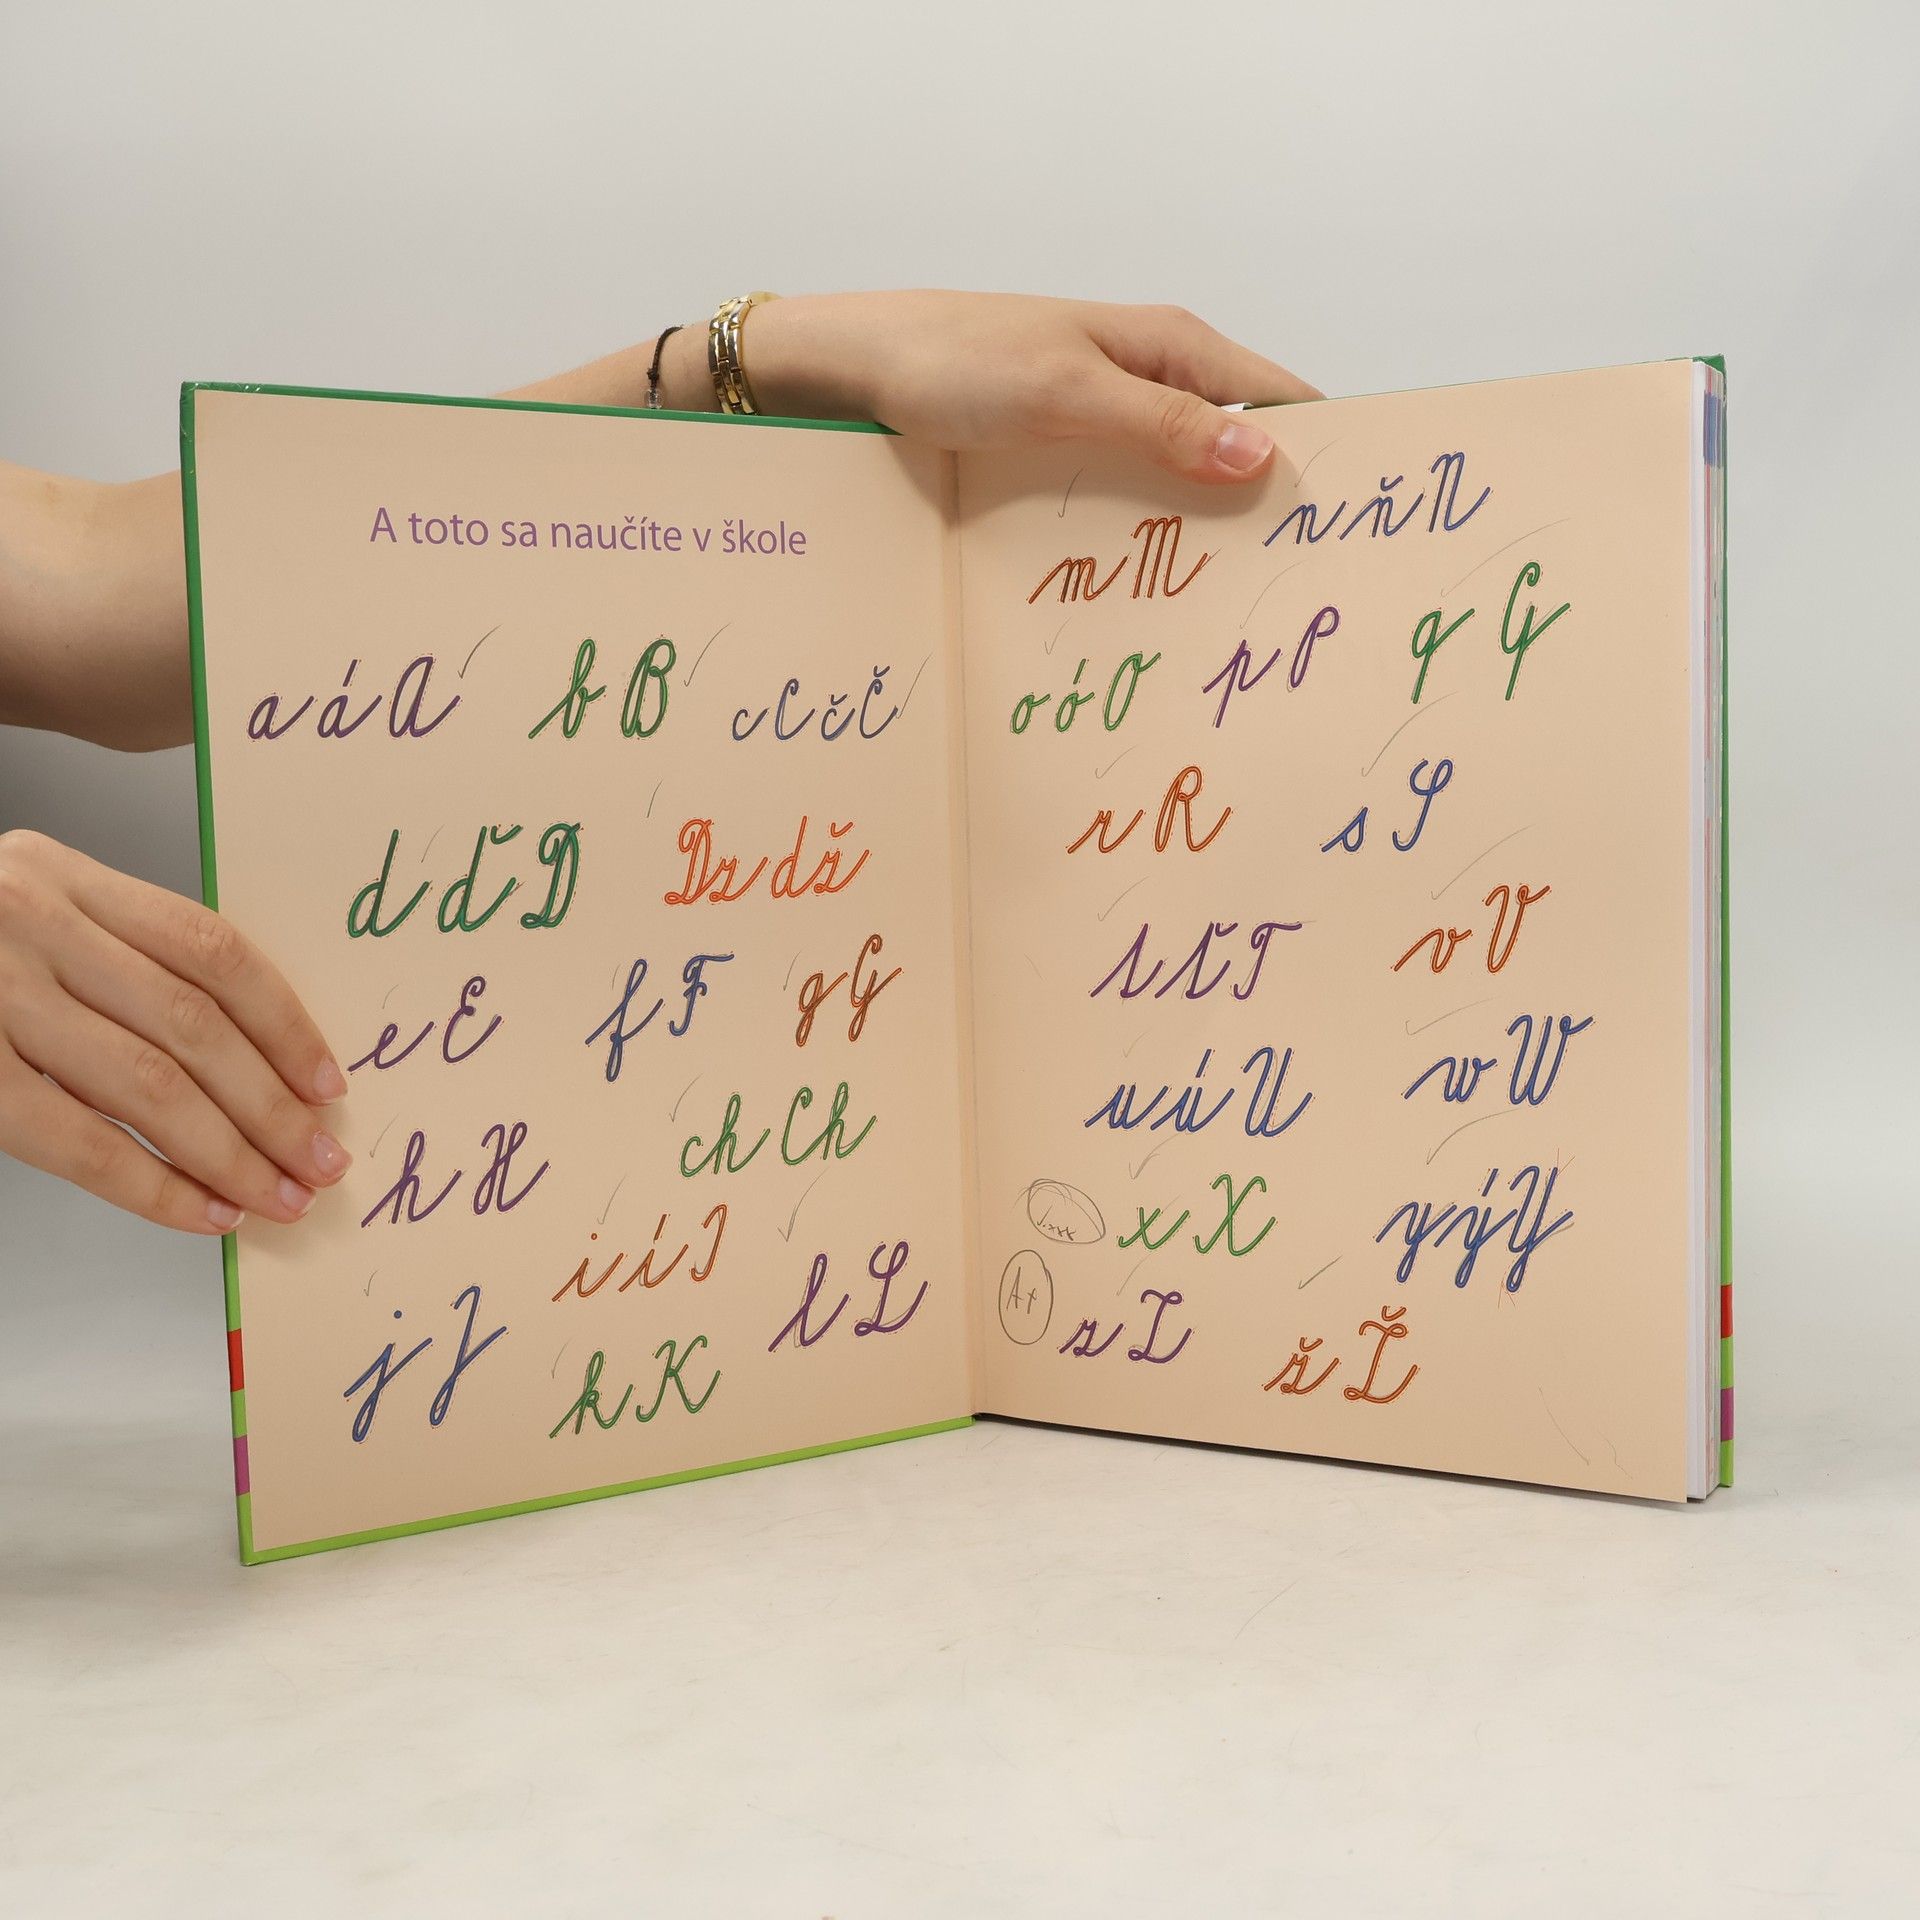 A toto sa naučíte v škole
a á A b B c C č Č
d ď D Dz dž
e E f F g G
h H ch Ch
i í I
j J k K l L
m M n ň N
o ó O p P q Q
r R s S
t ť T v V
u ú U w W
x X y ý Y
A+
z Z ž Ž